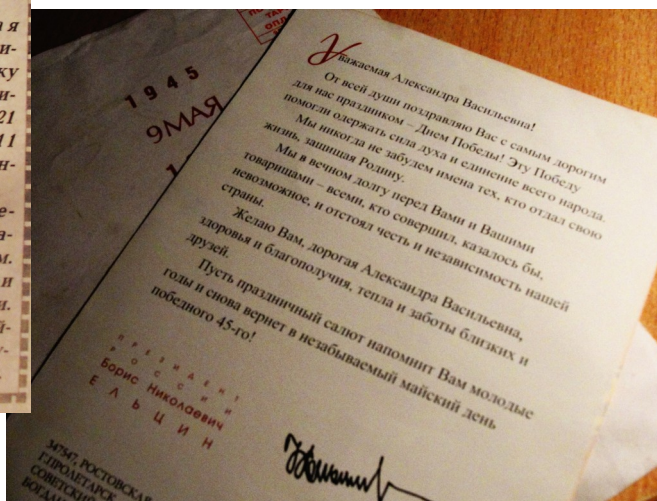 а я
и-
ку
и-
21
11
н-
е-
а-
м.
и
и.
й-
у-
1945
9МАЯ
Уважаемая Александра Васильевна!
От всей души поздравляю Вас с самым дорогим
для нас праздником – Днем Победы! Эту Победу
помогли одержать сила духа и единение всего народа.
Мы никогда не забудем имена тех, кто отдал свою
жизнь, защищая Родину.
Мы в вечном долгу перед Вами и Вашими
товарищами – всеми, кто совершил, казалось бы,
невозможное, и отстоял честь и независимость нашей
страны.
Желаю Вам, дорогая Александра Васильевна,
здоровья и благополучия, тепла и заботы близких и
друзей.
Пусть праздничный салют напомнит Вам молодые
годы и снова вернет в незабываемый майский день
победного 45-го!
ПРЕЗИДЕНТ
РОССИИ
Борис Николаевич
ЕЛЬЦИН
347547, РОСТОВСКАЯ
Г.ПРОЛЕТАРСК
СОВЕТСКИЙ